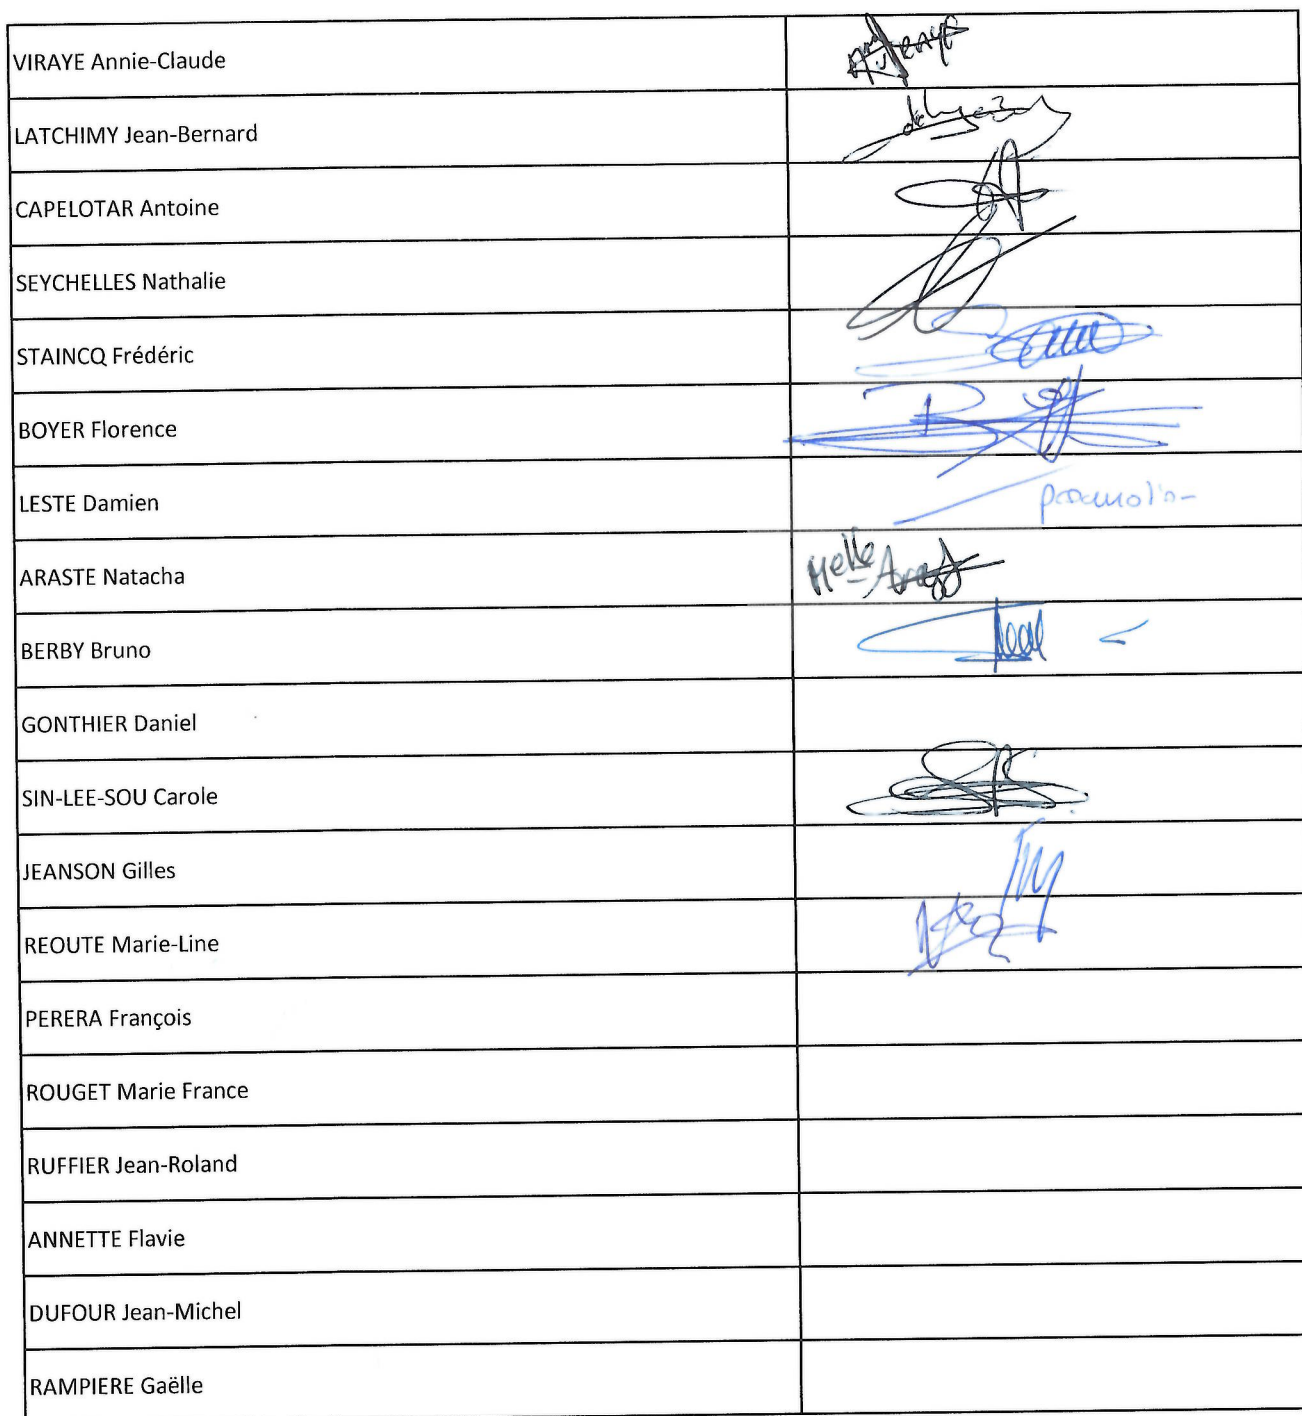 VIRAYE Annie-Claude
LATCHIMY Jean-Bernard
CAPELOTAR Antoine
SEYCHELLES Nathalie
STAINCQ Frédéric
BOYER Florence
LESTE Damien
ARASTE Natacha Melle
BERBY Bruno
GONTHIER Daniel
SIN-LEE-SOU Carole
JEANSON Gilles
REOUTE Marie-Line
PERERA François
ROUGET Marie France
RUFFIER Jean-Roland
ANNETTE Flavie
DUFOUR Jean-Michel
RAMPIERE Gaëlle